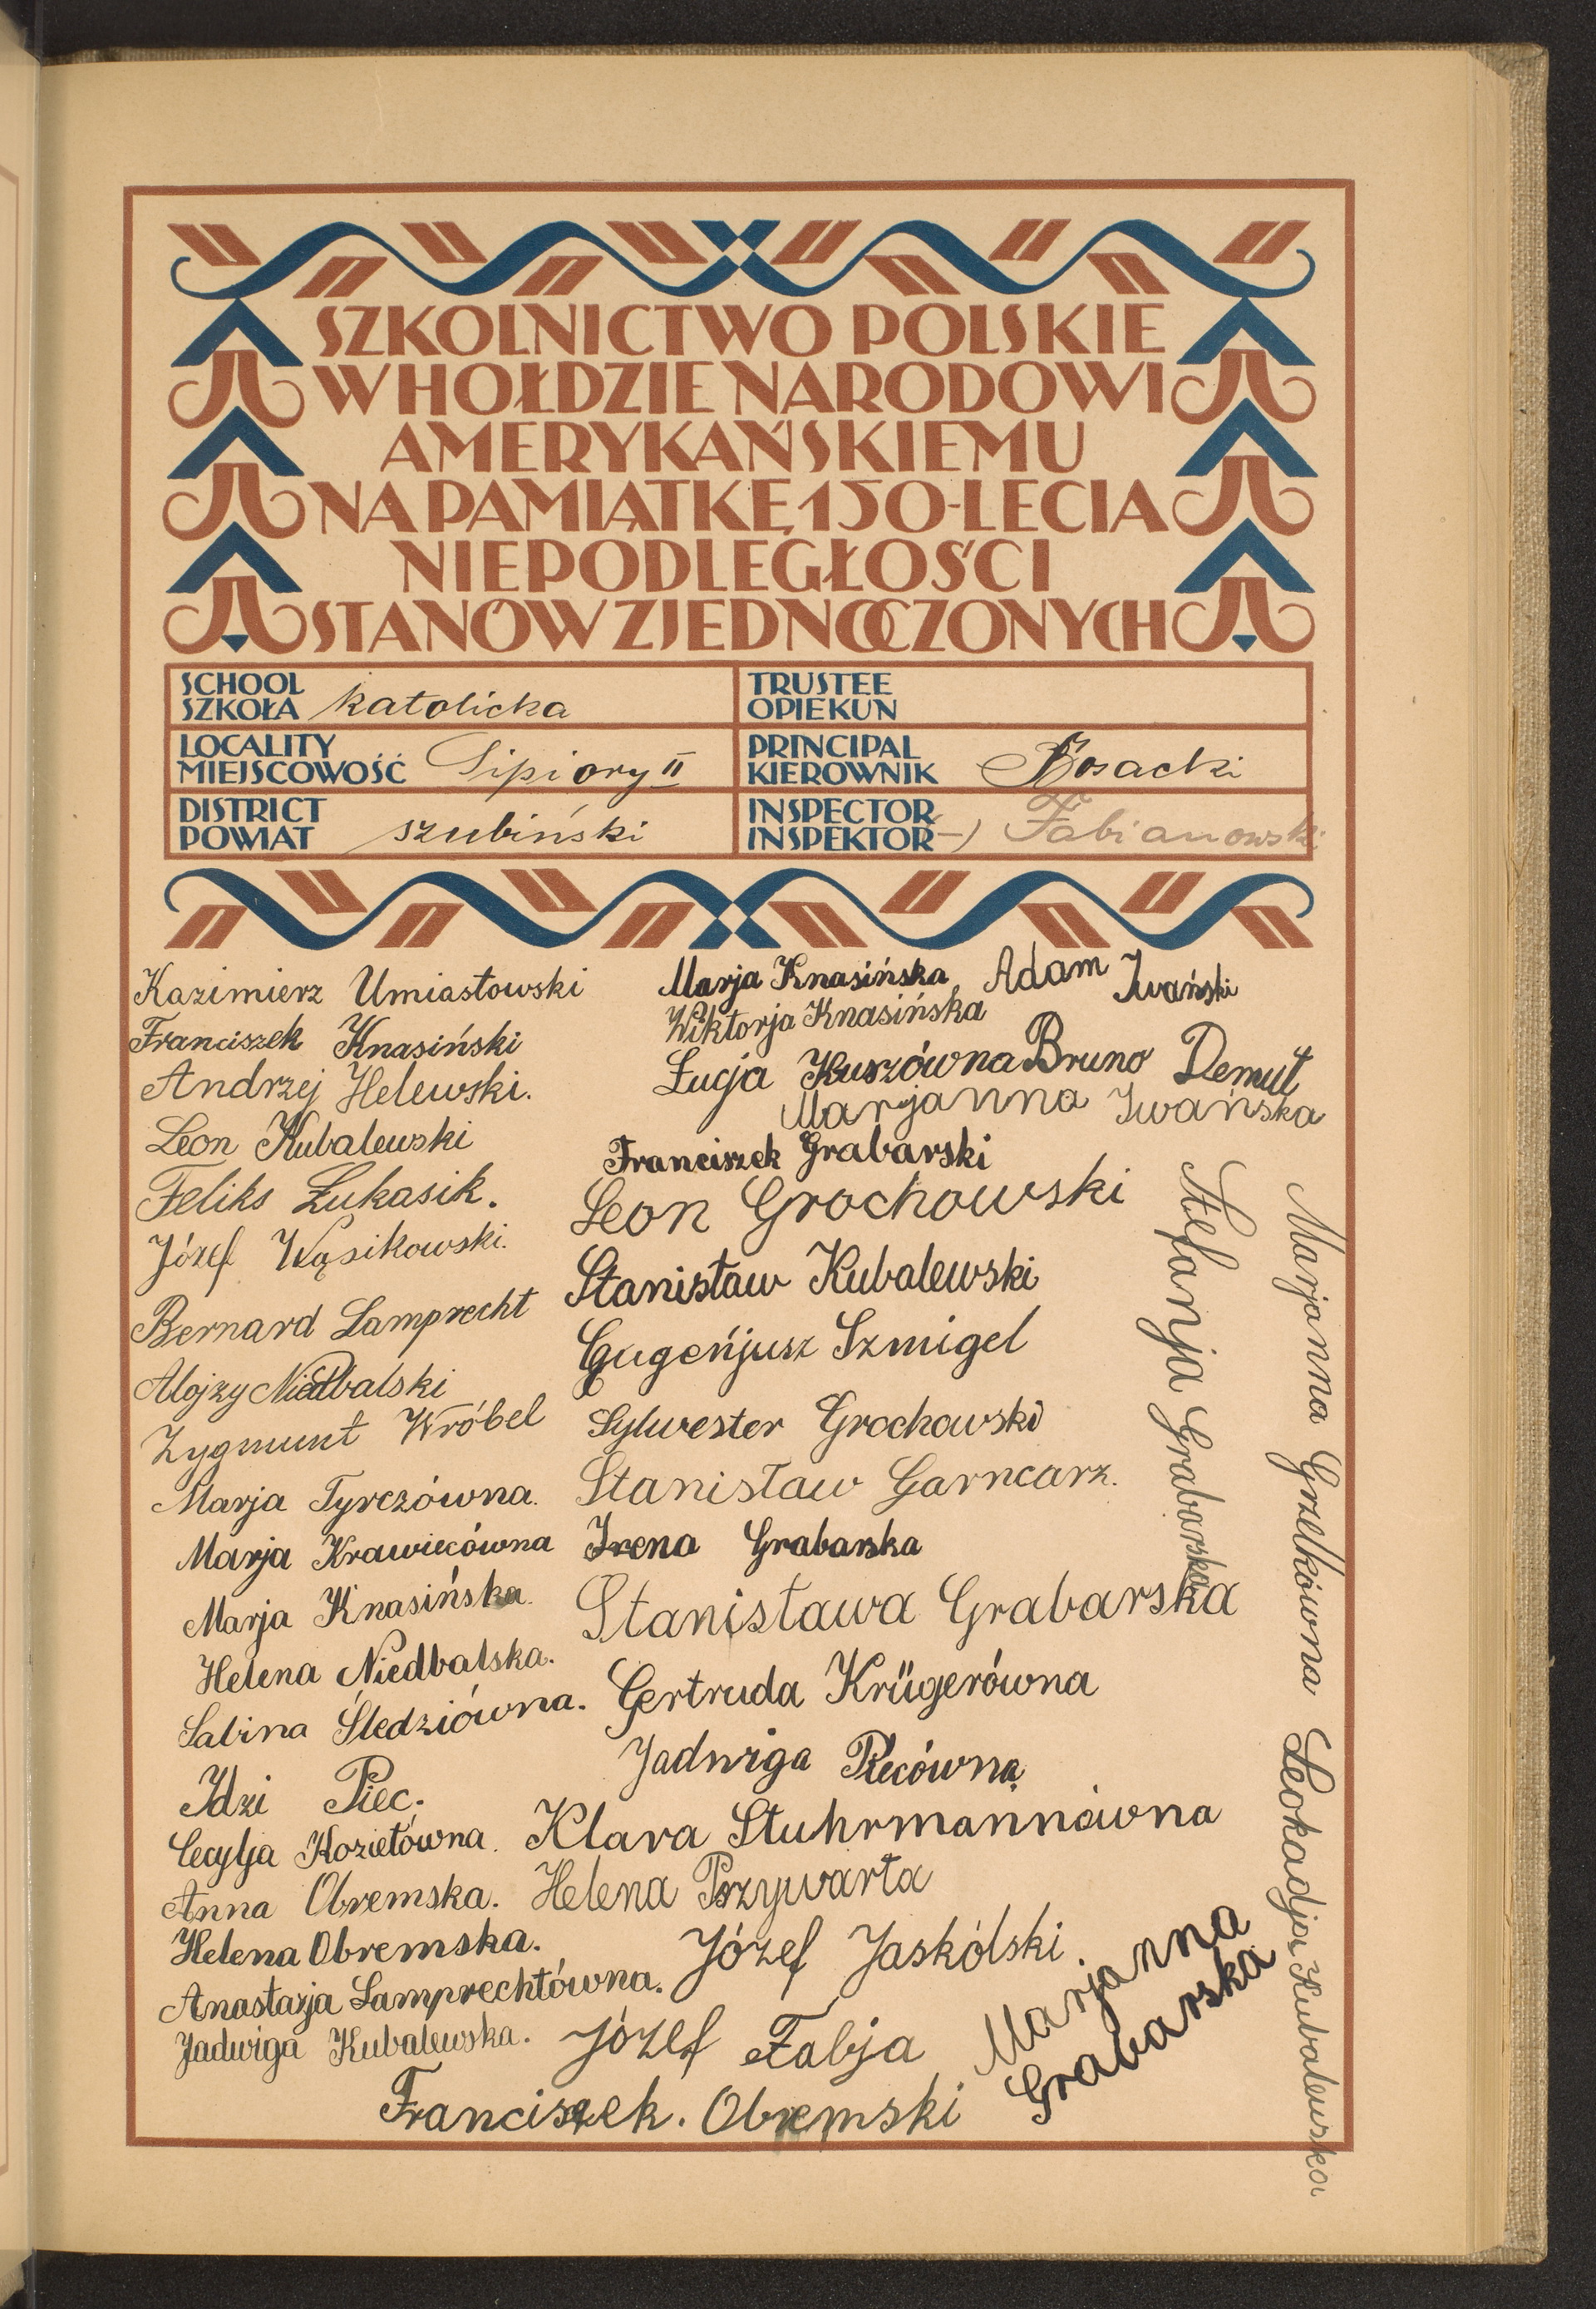 SZKOLNICTWO POLSKIE
W HOŁDZIE NARODOWI
AMERYKAŃSKIEMU
NA PAMIĄTKĘ 150-LECIA
NIEPODLEGŁOŚCI
STANÓW ZJEDNOCZONYCH
SCHOOL
SZKOŁA katolicka
TRUSTEE
OPIEKUN
LOCALITY
MIEJSCOWOŚĆ Sipiory II
PRINCIPAL
KIEROWNIK Bosacki
DISTRICT
POWIAT szubiński
INSPECTOR
INSPEKTOR (-) Fabianowski
Kazimierz Umiastowski
Franciszek Knasiński
Andrzej Helewski.
Leon Kubalewski
Feliks Łukasik.
Józef Wąsikowski.
Bernard Lamprecht
Alojzy Niedbalski
Zygmunt Wróbel
Marja Tyrczówna.
Marja Krawiecówna
Marja Knasińska.
Helena Niedbalska.
Sabina Śledziówna.
Idzi Piec.
Cecylja Koziełówna.
Anna Obremska.
Helena Obremska.
Anastazja Lamprechtówna.
Jadwiga Kubalewska.
Franciszek. Obremski
Marja Knasińska
Adam Iwański
Wiktorja Knasińska
Łucja Kuszówna
Bruno Demut
Marjanna Iwańska
Franciszek Grabarski
Leon Grochowski
Stanisław Kubalewski
Eugeńjusz Szmigel
Sylwester Grochowski
Stanisław Garncarz.
Irena Grabarska
Stanisława Grabarska
Gertruda Krügerówna
Jadwiga Piecówna
Klara Stuhrmannówna
Helena Przywarta
Józef Jaskólski.
Józef Fabja
Marjanna
Grabarska
Stefanja Grabarska
Marjanna Grzelkówna
Leokadja Kubalewska